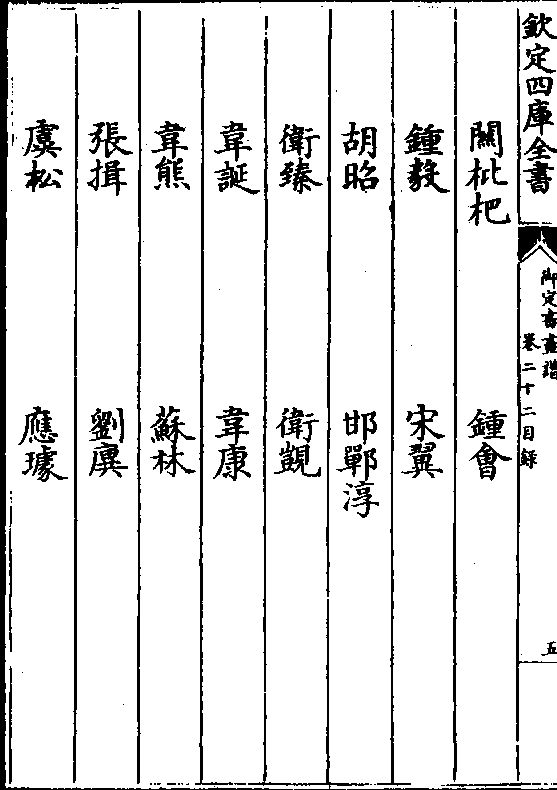 欽定四庫全書
御定書畫譜
卷二十二目録
五
關枇杷 鍾會
鍾毅 宋翼
胡昭 邯鄲淳
衛臻 衛覬
韋誕 韋康
韋熊 蘇林
張揖 劉廙
虞松 應璩